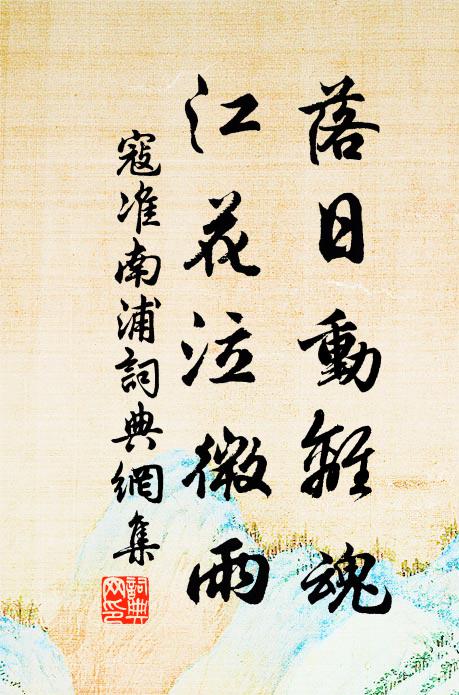 落日動離魂
江花泣微雨
寇准南浦詞典網集
詞典